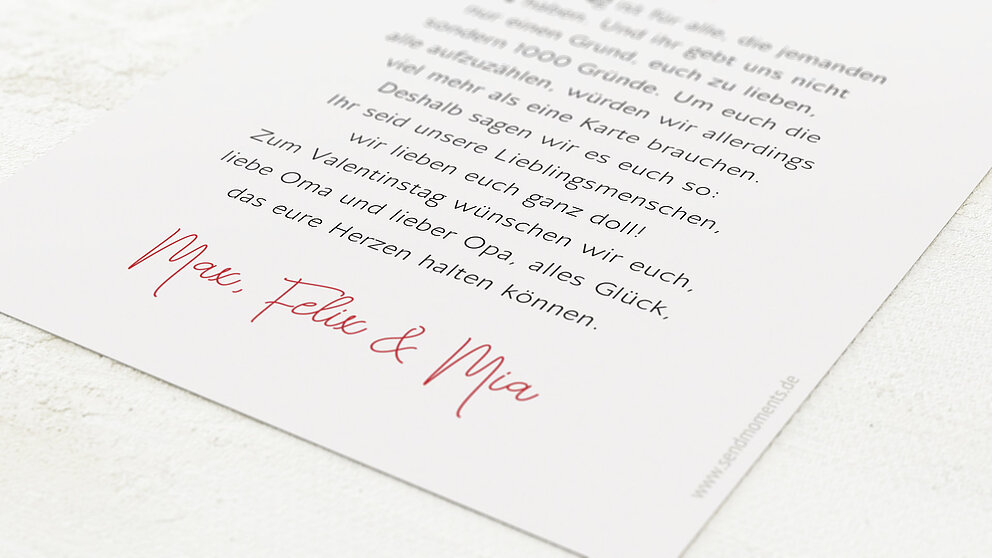 ist für alle, die jemanden
haben. Und ihr gebt uns nicht
nur einen Grund, euch zu lieben,
sondern 1000 Gründe. Um euch die
alle aufzuzählen, würden wir allerdings
viel mehr als eine Karte brauchen.
Deshalb sagen wir es euch so:
Ihr seid unsere Lieblingsmenschen,
wir lieben euch ganz doll!
Zum Valentinstag wünschen wir euch,
liebe Oma und lieber Opa, alles Glück,
das eure Herzen halten können.
Max, Felix & Mia
www.sendmoments.de